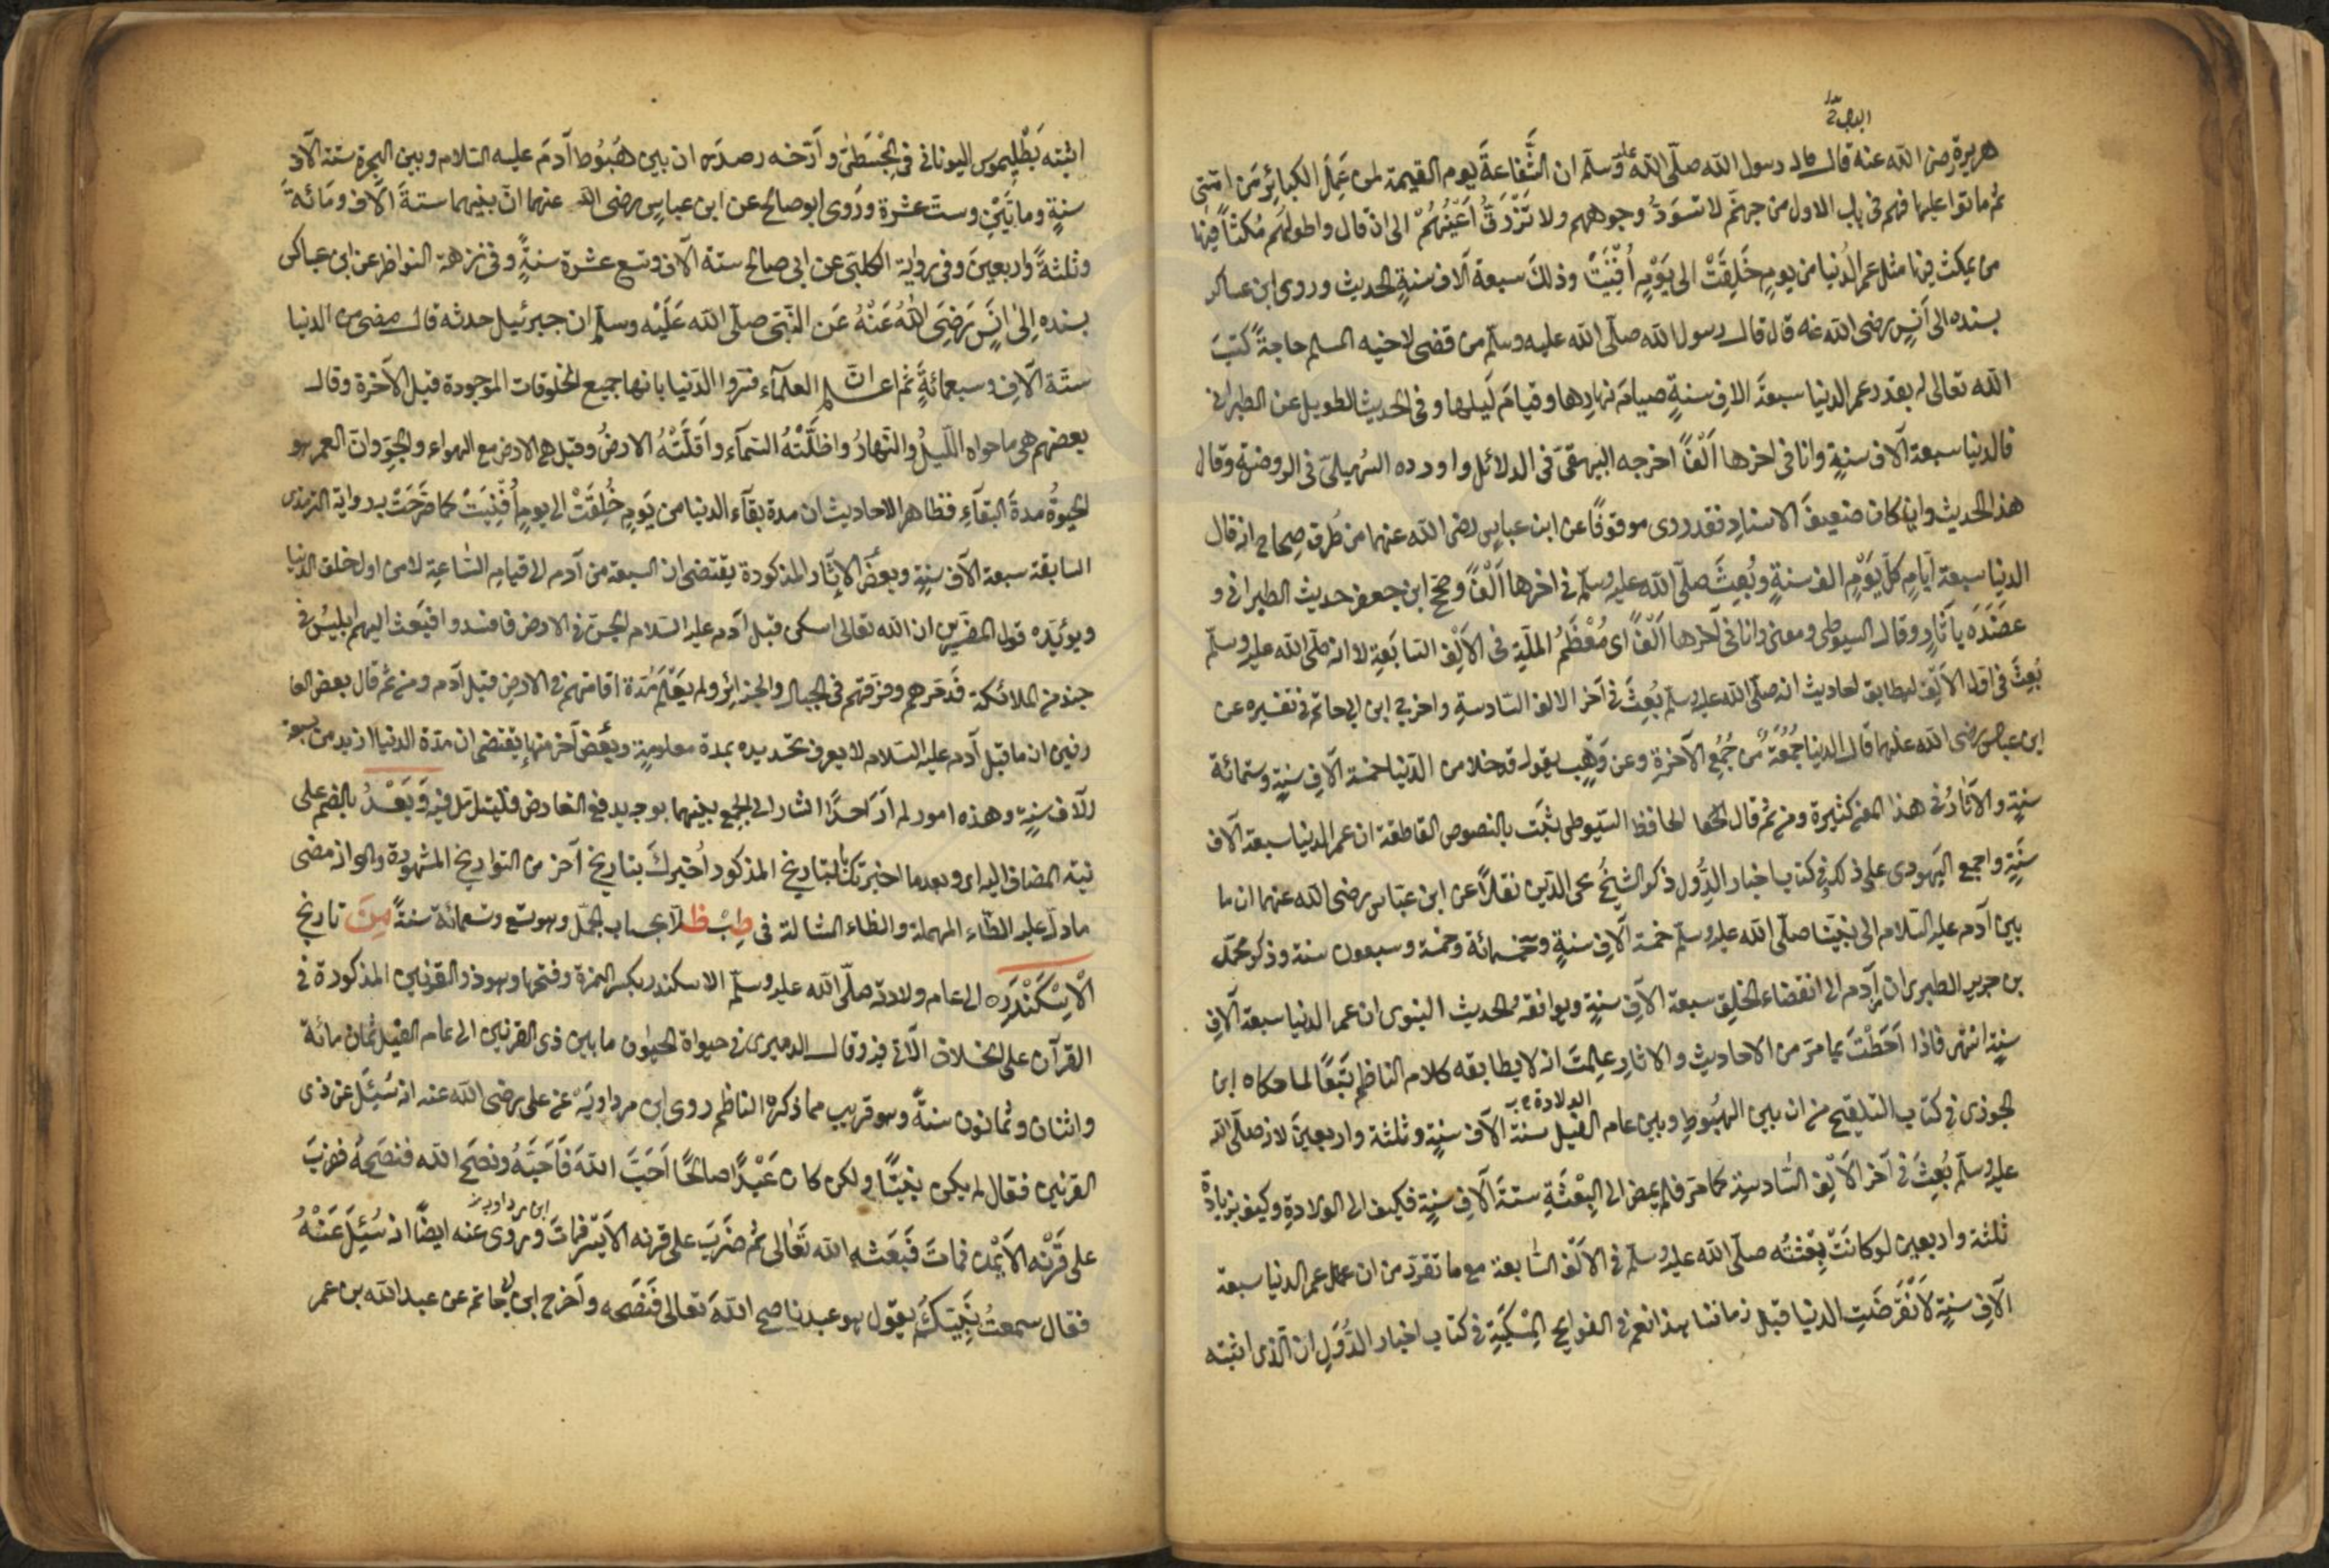 هريرة رضى الله عنه قال قال رسول الله صلّى الله عليه وسلّم ان الشَّفاعةَ يوم القيمة لمن عَمِلَ الكبائِرَ مِن امّتى
ثم ماتوا عليها فهم فى باب الاول من جهنّم لا تسوَدُّ وجوههم ولا تَزْرَقُّ اَعْيُنُهُمْ الى ان قال واطولهُم مُكثاً فيها
من يمكث فيها مثل عمر الدُنيا من يومٍ خُلِقَتْ الى يَوْمٍ اُفْنِيَتْ وذلكَ سبعة آلاف سنةٍ الحديث وروى ابن عساكر
بسنده الى اَنَسٍ رضى الله عنه قال قال رسول الله صلّى الله عليه وسلّم من قضى لاخيه المسلم حاجةً كتبَ
الله تعالى له بقدر عمر الدنيا سبعةَ الافِ سنةٍ صيامَ نهارِها وقيامَ لَيلها وفى الحديث الطويل عن الطبرانى
فالدنيا سبعة آلاف سنةٍ وانا فى اخرها اَلْفًا اخرجه البيهقىّ فى الدلائل واورده السُهيلىّ فى الروضةِ وقال
هذا الحديث وان كان ضعيفَ الاسنادِ فقد روى موقوفًا عن ابن عباسٍ رضى الله عنهما من طُرقٍ صِحاحٍ انه قال
الدنيا سبعة ايّامٍ كلّ يَوْمٍ الف سنةٍ وبُعِثَ صلّى الله عليه وسلّم فى اخرها اَلْفًا وصحّح ابن جعفر حديث الطبرانى و
عضَّدَه بآثارٍ وقال السيوطى ومعنى وانا فى آخرها اَلْفًا اى مُعْظَمُ الملّةِ فى الاَلْفِ السّابَعةِ لا انه صلّى الله عليه وسلّم
بُعِثَ فى اوّل الاَلْفِ ليطابق احاديث انه صلّى الله عليه وسلم بُعِثَ فى آخر الالف السّادسةِ واخرج ابن ابى حاتم فى تفسيره عن
ابن عباس رضى الله عنهما قال الدنيا جُمُعَةٌ من جُمُعِ الآخرةِ وعن وَهْبٍ يقول قد خلا من الدّنيا خمسة آلاف سنةٍ وستمائة
سنةٍ والآثارُ فى هذا المعنى كثيرة ومن ثم قال الحافظ السّيوطى ثَبَتَ بالنصوص القاطعة ان عمر الدنيا سبعة آلاف
سنَةٍ واجمع اليَهودى على ذلك فى كتاب اخبار الدُّوَل ذكر الشيخُ محى الدّين نقلاً عن ابن عبّاس رضى الله عنهما ان ما
بين آدم عليه السّلام الى نبيّنا صلّى الله عليه وسلّم خمسة آلاف سنةٍ وخمسمائة وخمسة وسبعون سنة وذكر محمّد
بن جرير الطبرى ان من آدم الى انقضاء الخلق سبعة الآفِ سنةٍ ويوافقه الحديث النبوى ان عمر الدنيا سبعة آلافِ
سنةٍ انتهى فاذا اَحَطْتَ بما مرّ من الاحاديث والاثارِ علِمتَ انه لا يطابقه كلام الناظم تبعًا لما حكاه ابن
الجوزى فى كتاب التلقيح من ان بين الهبُوطِ وبين عام الفيل ستة الآف سنةٍ وثلثة واربعينَ لانه صلّى الله
عليه وسلّم بُعِثَ فى آخر الاَلْفِ السّادسةِ كما مرّ فلم يمض الى البِعْثَةِ ستةُ آلافِ سنةٍ فكيف الى الولادةِ وكيف بزيادة
ثلثة واربعين لو كانَتْ بِعْثتُه صلّى الله عليه وسلّم فى الاَلْف السّابعة مع ما تقرّر من ان عمر الدنيا سبعة
آلافِ سنةٍ لاَنْقَرَضَتِ الدنيا قبل زماننا هذا نعم فى الفوايح المِسْكيّةِ فى كتاب اخبار الدُّوَلِ ان الّذى اثبته
اثبته بَطْليموس اليونانى فى المِجْسَطى وأرّخه رصدَه ان بين هبُوُط آدمَ عليه السّلام وبين الهجرة ستة الآف
سنةٍ ومأتَيْنِ وستّ عشرة ورَوى ابو صالح عن ابن عباسٍ رضى الله عنهما انّ بينهما ستةَ آلاف ومَائةً
وثلثةً واربعينَ وفى رواية الكلبىّ عن ابى صالح ستة آلاف وتسع عشرة سنةٍ وفى نزهة النواظر عن ابن عساكر
بسنده الى اَنَسٍ رَضِىَ اللهُ عَنْهُ عَن النّبىّ صلّى الله عَلَيْه وسلّم ان جبرئيل حدثه قال مضى من الدنيا
ستّة آلافِ وسبعمائةٍ ثم اعلم انّ العلمآء فسّروا الدّنيا بانها جميع المخلوقات الموجودة قبل الآخرة وقال
بعضهم هى ما حواه اللّيلُ والنّهارُ واظلّتْهُ السّمآء واَقلّتْهُ الارضُ وقيل هى الارض مع الهواء والجوّ وانّ العمر هو
الحيوةُ مدةَ البقآءِ فظاهر الاحاديث ان مدة بقآء الدنيا من يَومٍ خُلِقَتْ الى يومٍ اُفْنِيَتْ كما صرّحَتْ به رواية الترمذى
السابقة سبعة الآف سنةٍ وبعضُ الآثار المذكورة يقتضى ان السبعة من آدم الى قيام السّاعة لا من اول خلق الدنيا
ويؤيّده قول المفسّرين ان الله تعالى اسكن قبل آدم عليه السّلام الجنّ فى الارض فافسدوا فبَعَث اليهم ابليسَ فى
جند من الملائكة فَدمّرهم وفرّقهم فى الجبال والجزائر ولم يُعْلَم مدّة اقامتهم فى الارض قبل آدم ومن ثم قال بعض العا
رفين ان ما قبل آدم عليه السّلام لا يعرف تحديده بمدة معلومةٍ وبعْضٌ آخر منها يقتضى ان مدّة الدنيا ازيد من سبعة
آلاف سنةٍ وهذه امور لم أرَ احدًا اشار الى الجمع بينهما بوجه يدفع التعارض فليتأمل فيه وَبَعْدُ بالضم على
نيّة المضاف اليه اى وبعد ما اخبرتك بالتاريخ المذكور اُخبرك بتاريخ آخر من التواريخ المشهودة وهو انه مضى
ما دلّ عليه الطّاء المهملة والظاء المشالة فى طِبْ ظلاّ بحساب الجمّل وهو تسع وتسعمائة سنةً مِنَ تاريخ
الْاِسْكَنْدَرِه الى عام ولادته صلّى الله عليه وسلّم الاسكندر بكسر الهمزة وفتحها وهو ذو القرنين المذكورة فى
القرآن على الخلاف الآتى فيه وقال الدميرى فى حيواة الحيوان ما بين ذى القرنين الى عام الفيل ثمان مائة
واثنان وثمانون سنةً وهو قريب مما ذكره الناظم روى ابن مرداويَه عن على رضى الله عنه انه سُئِلَ عن ذى
القرنين فقال لم يكن نبيًّا ولكن كان عَبْدًا صالحًا اَحَبَّ اللهَ فَاَحَبَّهُ ونصَح الله فنصَحهُ فضربَ
على قَرْنه الاَيْمن فماتَ فَبَعَثه الله تَعَالى ثم ضَرَبَ على قرنه الاَيْسَر فماتَ وروى عنه ايضاً انه سُئِلَ عَنْهُ
فقال سمعتُ نَبِيّكُم يقول هو عبد ناصح اللهَ تعالى فنَصَحه وأخرج ابن ابى حاتم عن عبد الله بن عمر